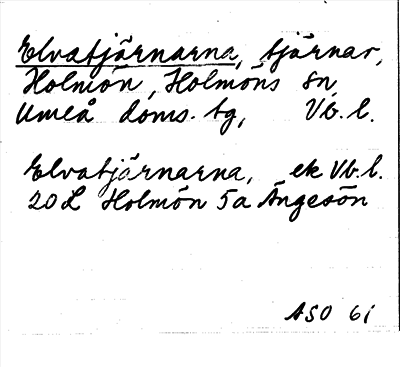 Elvatjärnarna, tjärnar,
Holmön, Holmöns sn,
Umeå doms. tg, Vb. l.
Elvatjärnarna, ek Vb. l.
20 L Holmön 5a Ängesön
ASO 61